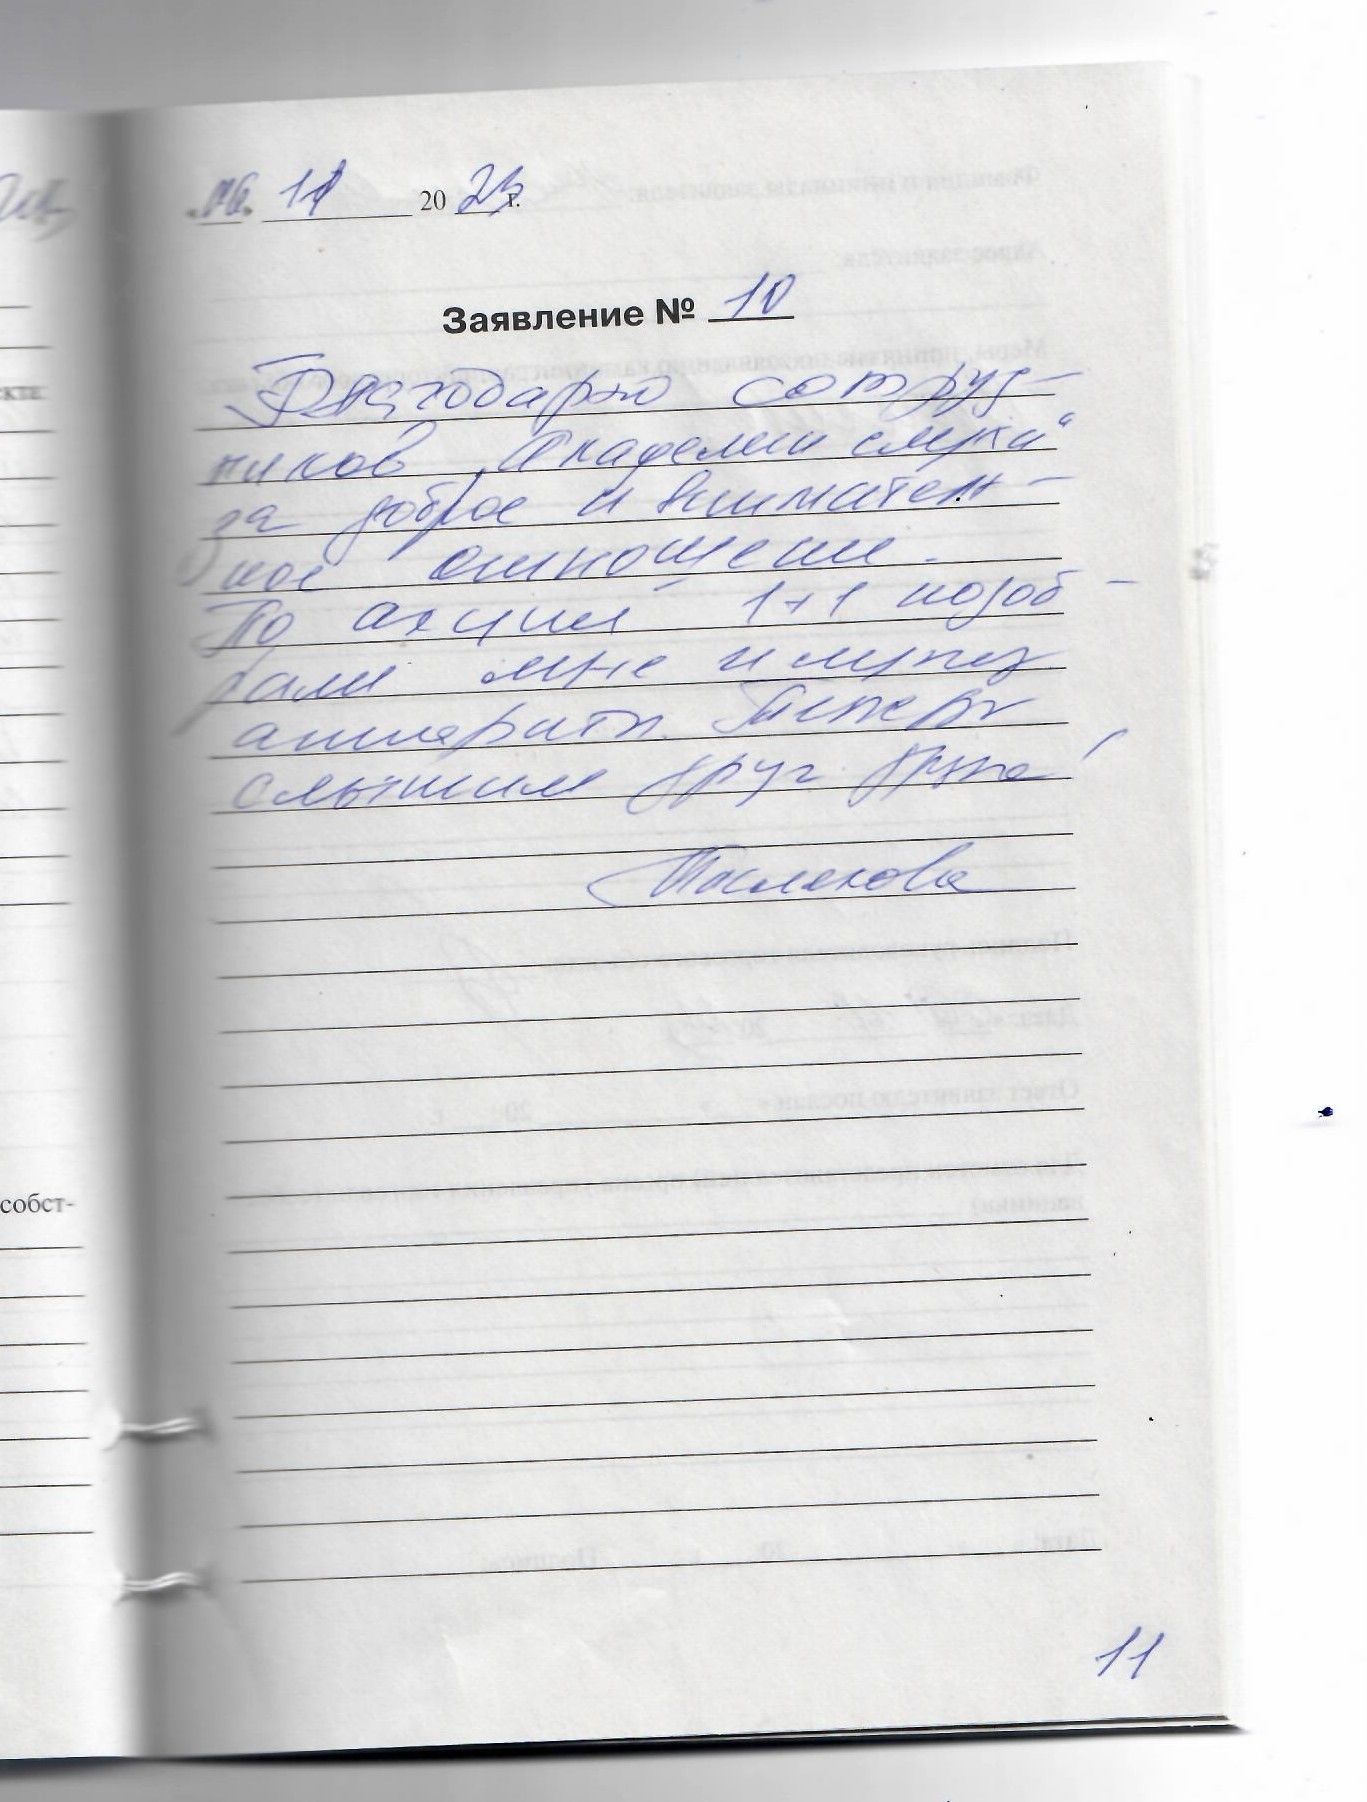 «06» 11 2023 г.
Заявление № 10
Благодарю сотруд-
ников „Академии слуха"
за доброе и вниматель-
ное отношение.
По акции 1+1 подоб-
рали мне и мужу
аппараты. Теперь
слышим друг друга!
11
екте
собст-